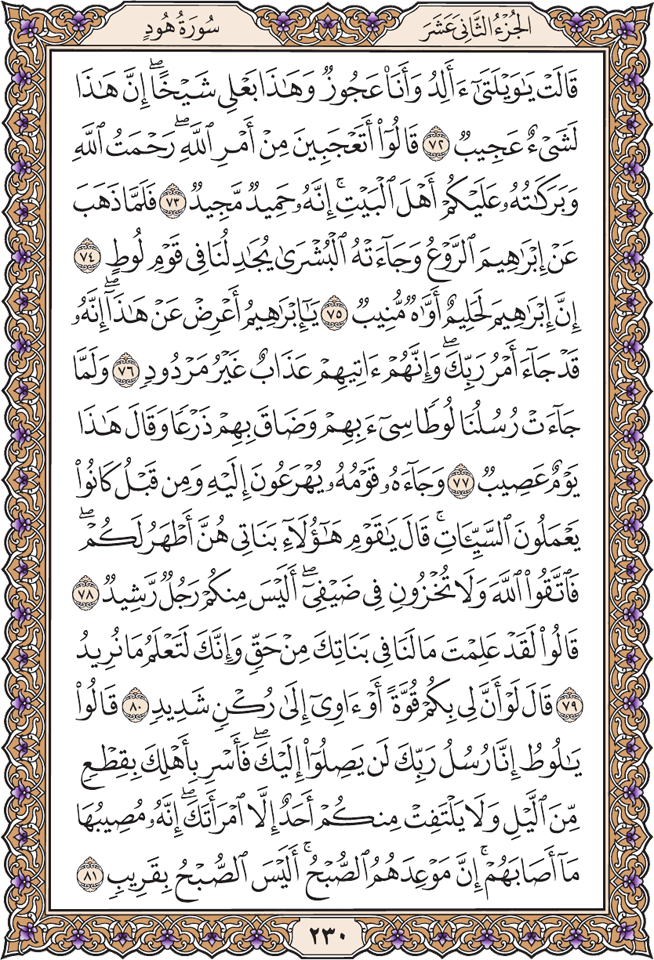 الجُزْءُ الثَّانِي عَشَرَ
سُورَةُ هُودٍ
قَالَتْ يَٰوَيْلَتَىٰٓ ءَأَلِدُ وَأَنَا۠ عَجُوزٌ وَهَٰذَا بَعْلِي شَيْخًاۖ إِنَّ هَٰذَا
لَشَيْءٌ عَجِيبٌ ٧٢ قَالُوٓا۟ أَتَعْجَبِينَ مِنْ أَمْرِ ٱللَّهِۖ رَحْمَتُ ٱللَّهِ
وَبَرَكَٰتُهُۥ عَلَيْكُمْ أَهْلَ ٱلْبَيْتِۚ إِنَّهُۥ حَمِيدٌ مَّجِيدٌ ٧٣ فَلَمَّا ذَهَبَ
عَنْ إِبْرَٰهِيمَ ٱلرَّوْعُ وَجَآءَتْهُ ٱلْبُشْرَىٰ يُجَٰدِلُنَا فِي قَوْمِ لُوطٍ ٧٤
إِنَّ إِبْرَٰهِيمَ لَحَلِيمٌ أَوَّٰهٌ مُّنِيبٌ ٧٥ يَٰٓإِبْرَٰهِيمُ أَعْرِضْ عَنْ هَٰذَآۖ إِنَّهُۥ
قَدْ جَآءَ أَمْرُ رَبِّكَۖ وَإِنَّهُمْ ءَاتِيهِمْ عَذَابٌ غَيْرُ مَرْدُودٍ ٧٦ وَلَمَّا
جَآءَتْ رُسُلُنَا لُوطًا سِيٓءَ بِهِمْ وَضَاقَ بِهِمْ ذَرْعًا وَقَالَ هَٰذَا
يَوْمٌ عَصِيبٌ ٧٧ وَجَآءَهُۥ قَوْمُهُۥ يُهْرَعُونَ إِلَيْهِ وَمِن قَبْلُ كَانُوا۟
يَعْمَلُونَ ٱلسَّيِّـَٔاتِۚ قَالَ يَٰقَوْمِ هَٰٓؤُلَآءِ بَنَاتِي هُنَّ أَطْهَرُ لَكُمْۖ
فَٱتَّقُوا۟ ٱللَّهَ وَلَا تُخْزُونِ فِي ضَيْفِيٓۖ أَلَيْسَ مِنكُمْ رَجُلٌ رَّشِيدٌ ٧٨
قَالُوا۟ لَقَدْ عَلِمْتَ مَا لَنَا فِي بَنَاتِكَ مِنْ حَقٍّ وَإِنَّكَ لَتَعْلَمُ مَا نُرِيدُ
٧٩ قَالَ لَوْ أَنَّ لِي بِكُمْ قُوَّةً أَوْ ءَاوِيٓ إِلَىٰ رُكْنٍ شَدِيدٍ ٨٠ قَالُوا۟
يَٰلُوطُ إِنَّا رُسُلُ رَبِّكَ لَن يَصِلُوٓا۟ إِلَيْكَۖ فَأَسْرِ بِأَهْلِكَ بِقِطْعٍ
مِّنَ ٱلَّيْلِ وَلَا يَلْتَفِتْ مِنكُمْ أَحَدٌ إِلَّا ٱمْرَأَتَكَۖ إِنَّهُۥ مُصِيبُهَا
مَآ أَصَابَهُمْۚ إِنَّ مَوْعِدَهُمُ ٱلصُّبْحُۚ أَلَيْسَ ٱلصُّبْحُ بِقَرِيبٍ ٨١
٢٣٠